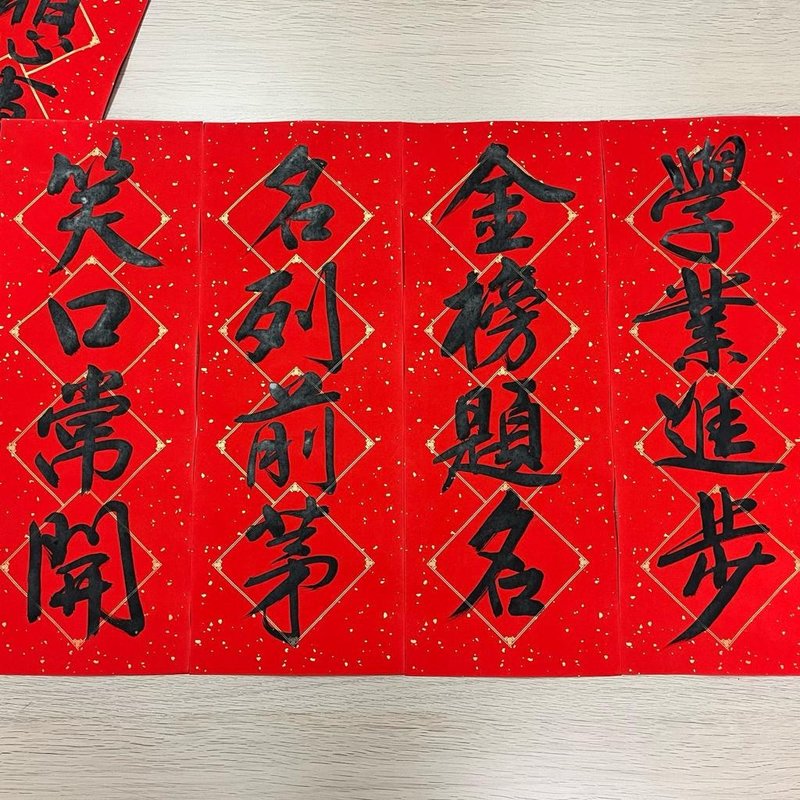 學業進步
金榜題名
名列前茅
笑口常開